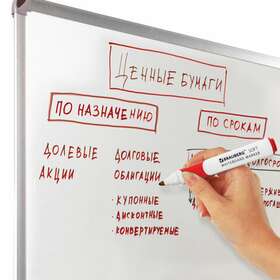 ЦЕННЫЕ БУМАГИ
ПО НАЗНАЧЕНИЮ
ПО СРОКАМ
ДОЛЕВЫЕ
АКЦИИ
ДОЛГОВЫЕ
ОБЛИГАЦИИ
• КУПОННЫЕ
• ДИСКОНТНЫЕ
• КОНВЕРТИРУЕМЫЕ
BRAUBERG SOFT
WHITEBOARD MARKER